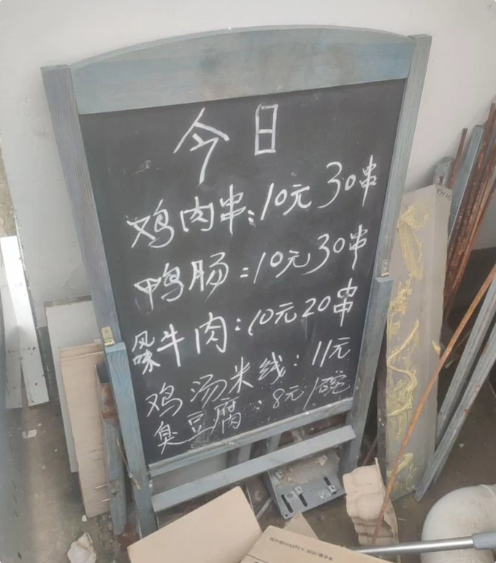 今日
鸡肉串:10元30串
鸭肠:10元30串
风味牛肉:10元20串
鸡汤米线:11元
臭豆腐:8元/碗